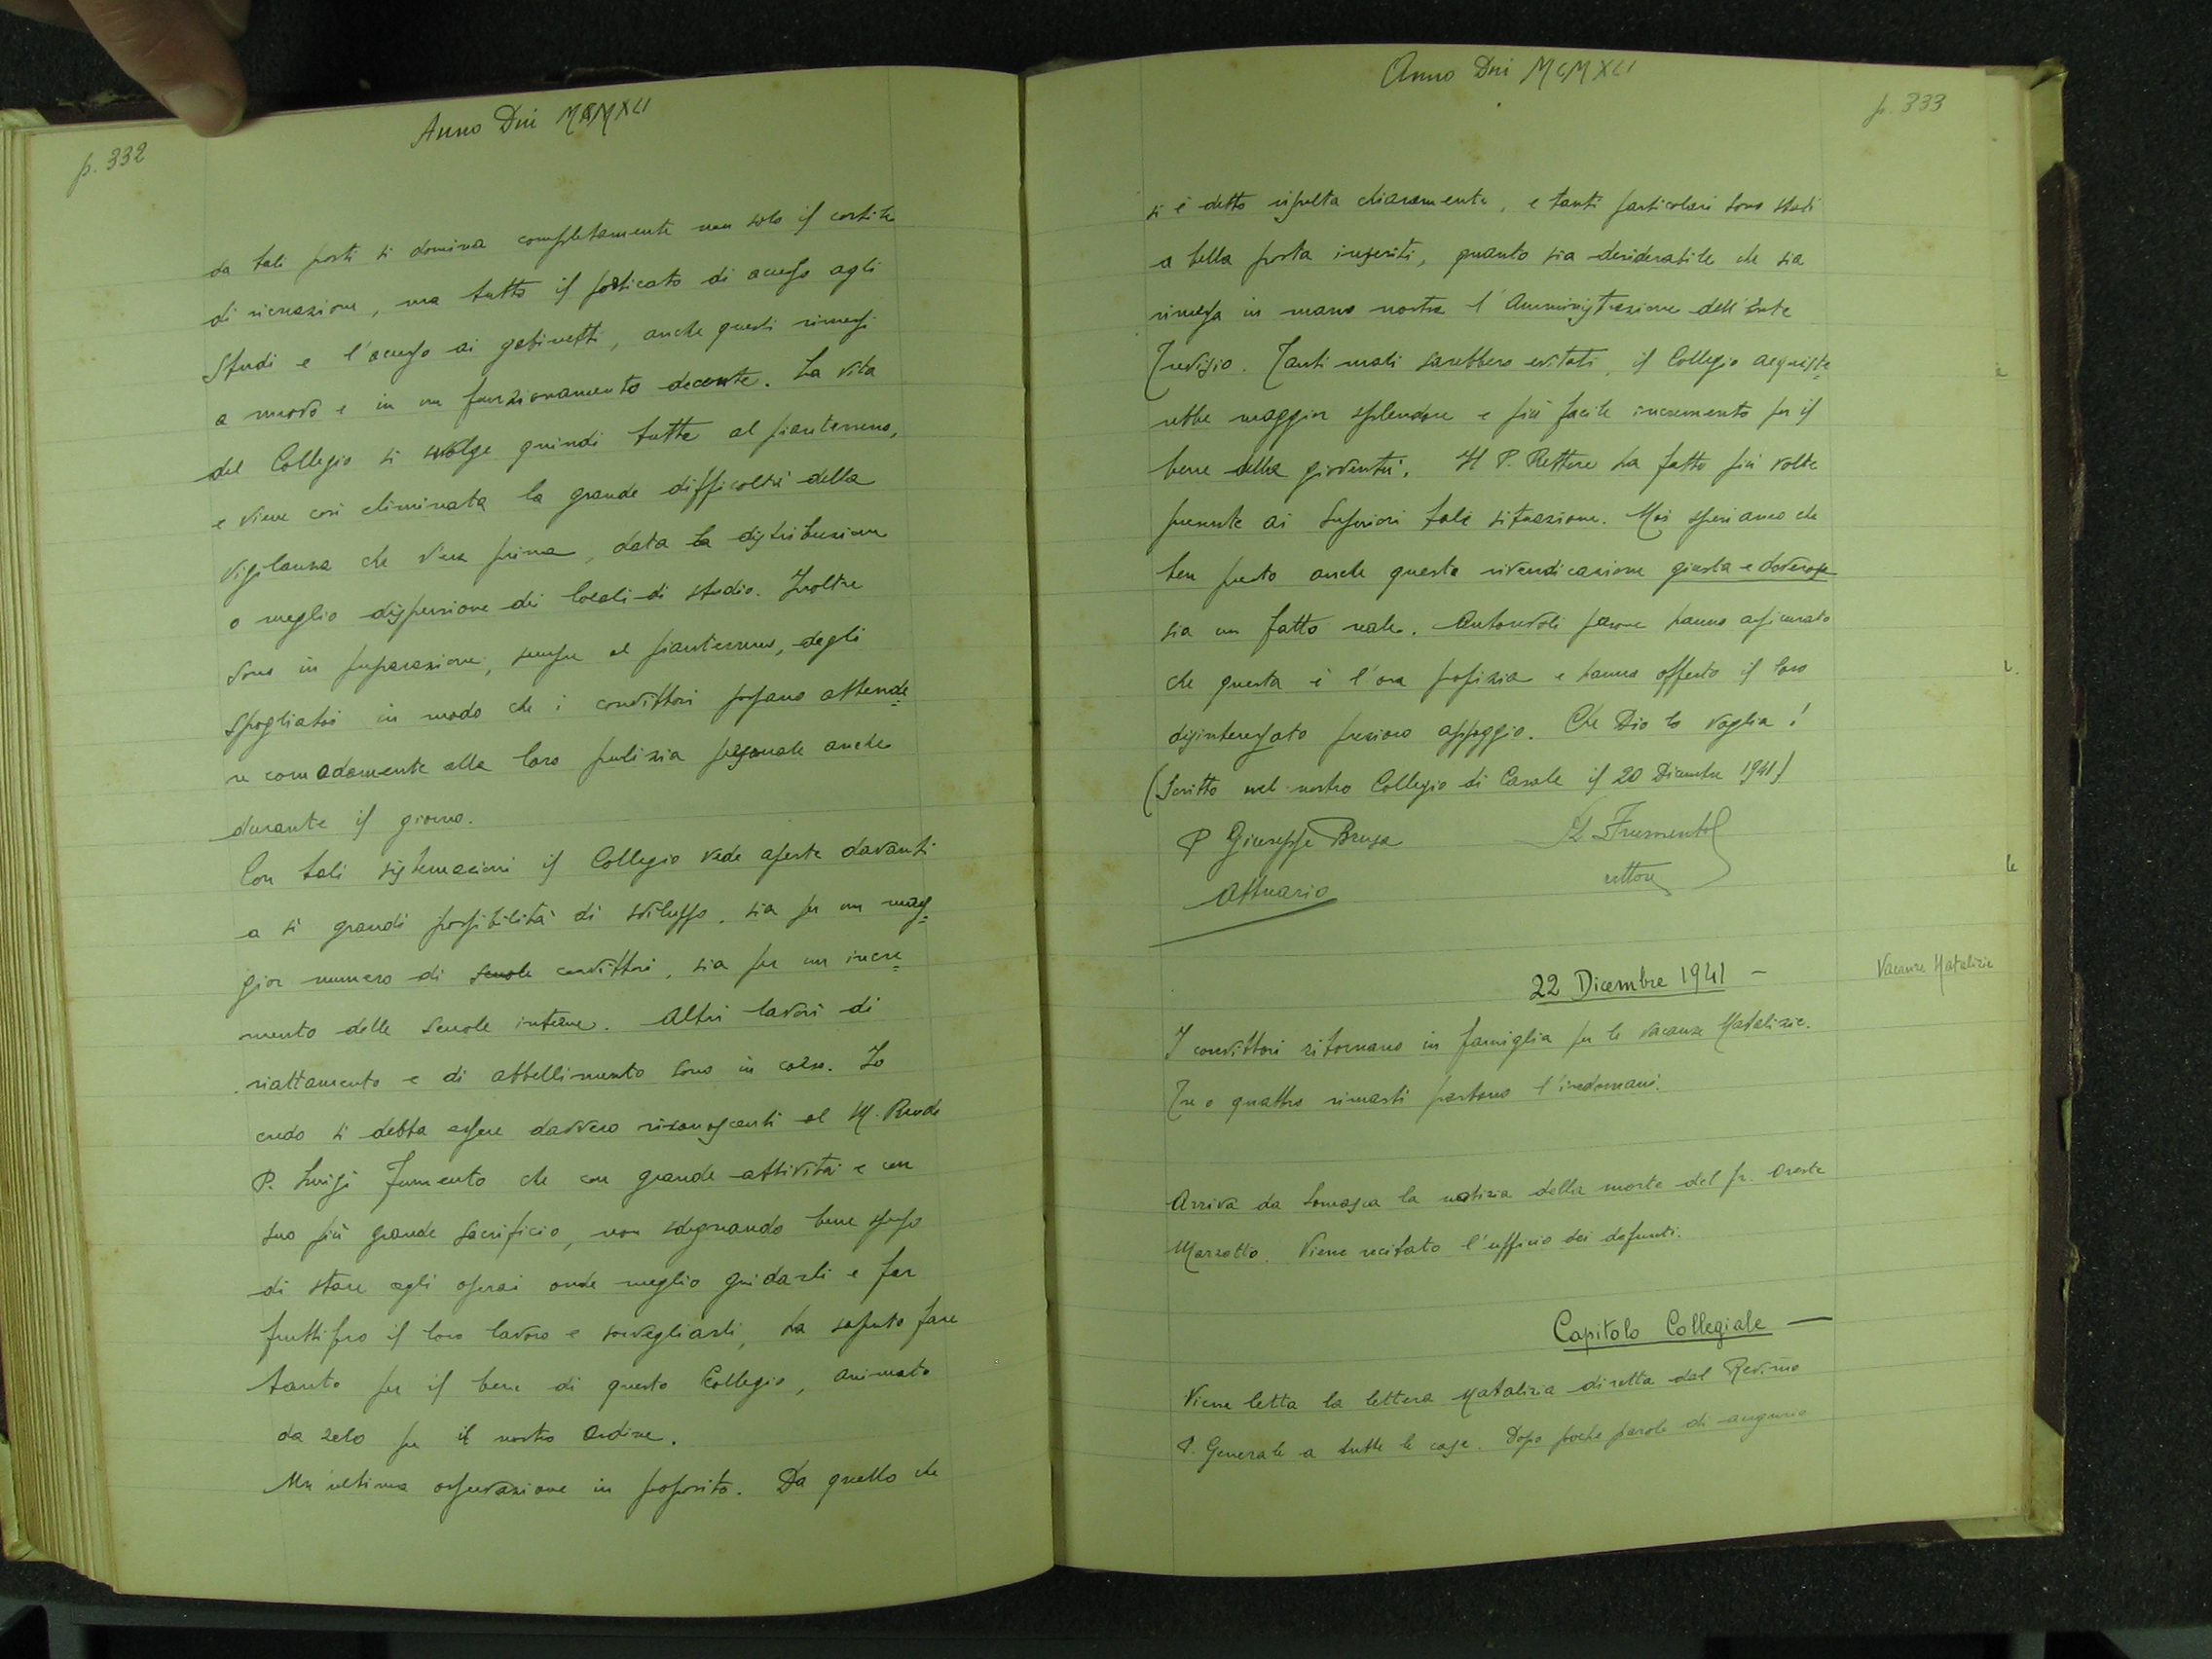 p. 332
Anno Dni MCMXLI
da tali posti si domina completamente non solo il cortile
di ricreazione, ma tutto il porticato di accesso agli
Studi e l'accesso ai gabinetti, anche questi rimessi
a nuovo e in un funzionamento decente. La vita
del Collegio si svolge quindi tutta al pianterreno,
e viene così eliminata la grande difficoltà della
vigilanza che v'era prima, data la distribuzione
o meglio dispersione dei locali di studio. Inoltre
sono in preparazione, sempre al pianterreno, degli
spogliatoi in modo che i convittori possano attende=
re comodamente alla loro pulizia personale anche
durante il giorno.
Con tali sistemazioni il Collegio vede aperte davanti
a sì grandi possibilità di sviluppo, sia per un mag=
gior numero di scuole convittori, sia per un incre=
mento delle scuole interne. Altri lavori di
riattamento e di abbellimento sono in corso. Io
credo si debba essere davvero riconoscenti al M. Rendo
P. Luigi Frumento che con grande attività e con
suo più grande sacrificio, non sdegnando bene spesso
di stare agli operai onde meglio guidarli e far
fruttifero il loro lavoro e sorvegliarli, ha saputo fare
tanto per il bene di questo Collegio, animato
da zelo per il nostro Ordine.
Un'ultima osservazione in proposito. Da quello che
Anno Dni MCMXLI
p. 333
si è detto risulta chiaramente, e tanti particolari sono stati
a bella posta inseriti, quanto sia desiderabile che sia
rimessa in mano nostra l'Amministrazione dell'Ente
Trevisio. Tanti mali sarebbero evitati, il Collegio acquiste=
rebbe maggior splendore e più facile incremento per il
bene della gioventù. Il P. Rettore ha fatto più volte
presente ai Superiori tale situazione. Noi speriamo che
ben presto anche questa rivendicazione giusta e doverosa
sia un fatto reale. Autorevoli persone hanno assicurato
che questa è l'ora propizia e hanno offerto il loro
disinteressato prezioso appoggio. Che Dio lo voglia!
(Scritto nel nostro Collegio di Casale il 20 Dicembre 1941)
P Giuseppe Brusa
Attuario
L Frumento
rettore
22 Dicembre 1941 –
Vacanze Natalizie
I convittori ritornano in famiglia per le vacanze Natalizie.
Tre o quattro rimasti partono l'indomani.
Arriva da Somasca la notizia della morte del fr. Oreste
Marzotto. Viene recitato l'ufficio dei defunti.
Capitolo Collegiale —
Viene letta la lettera Natalizia diretta dal Rev.mo
P. Generale a tutte le case. Dopo poche parole di augurio